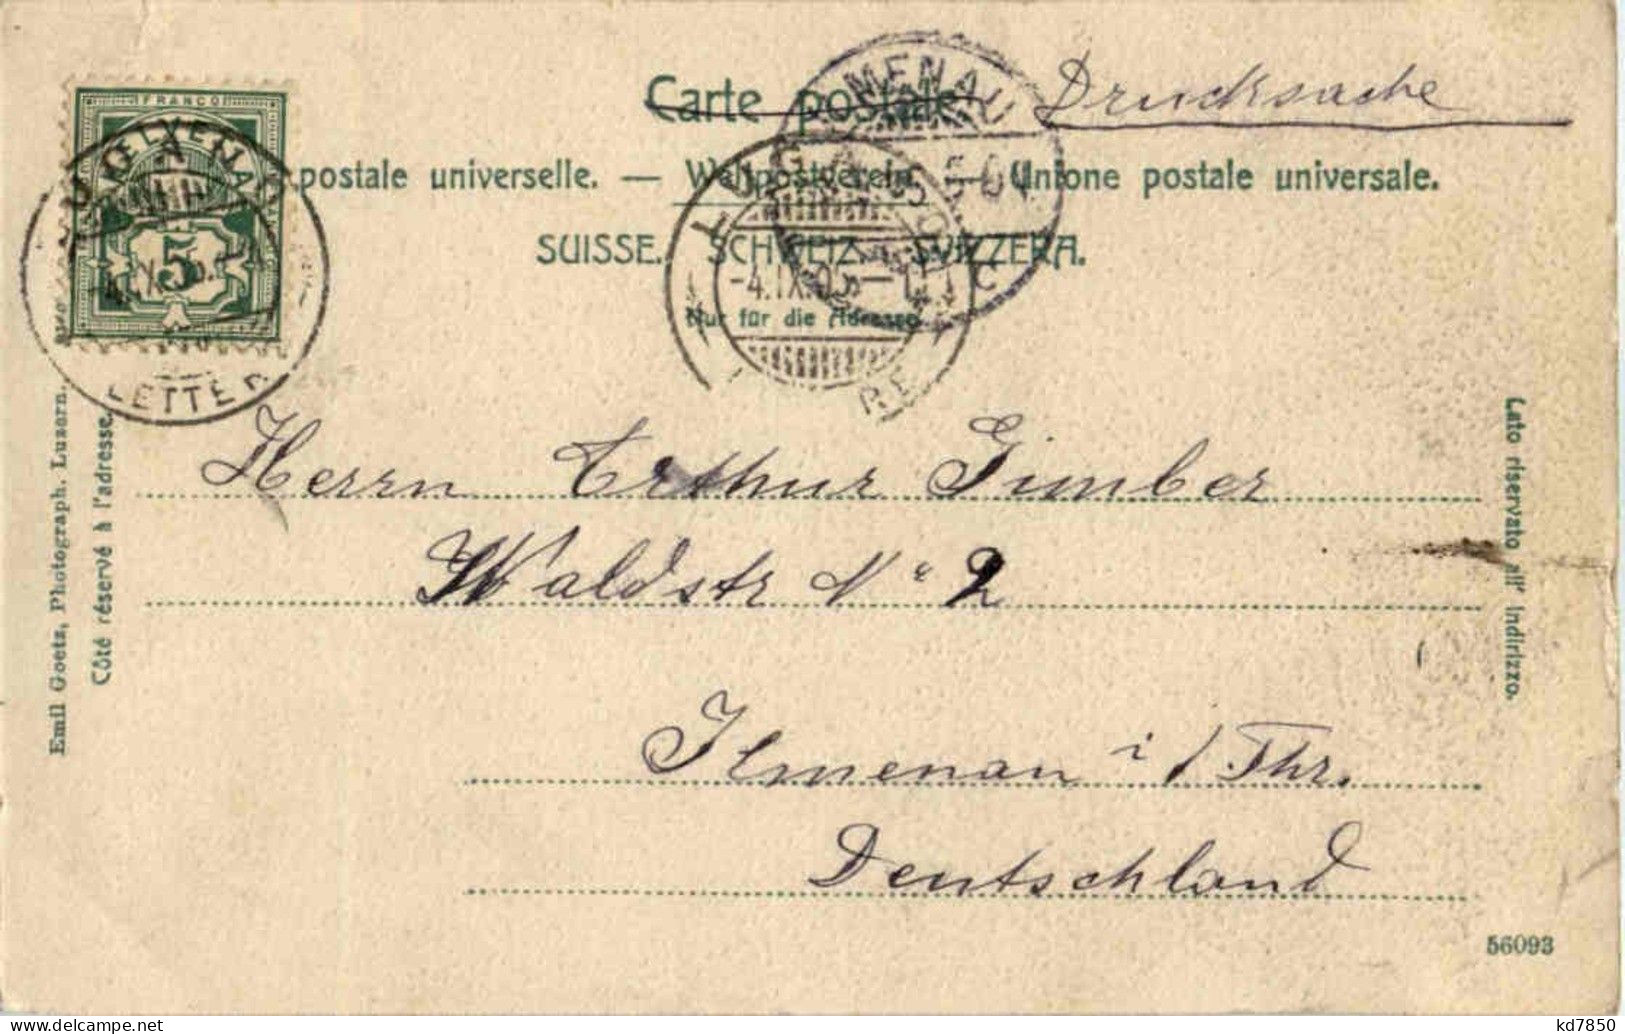 FRANCO
HELVETIA
5
LUGANO
LETTERE
ILMENAU
Carte postale.
Drucksache
postale universelle. — Weltpostverein. — Unione postale universale.
SUISSE. SCHWEIZ. SVIZZERA.
LUGANO
-4.IX.05.—
Nur für die Adresse
Herrn Arthur Gimber
Waldstr No 2
Ilmenau i/Thr.
Deutschland
Emil Goetz, Photograph. Luzern.
Côté réservé à l'adresse.
Lato riservato all' indirizzo.
56093
www.delcampe.net
kd7850